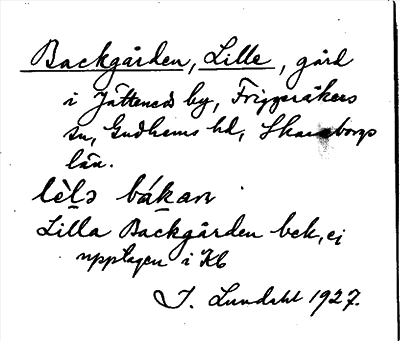 Backgården, Lille, gård
i Jättened by, Friggeråkers
sn, Gudhems hd, Skaraborgs
län.
lèlə bákan
Lilla Backgården bek, ej
upptagen i Kb
J. Lundahl 1927.